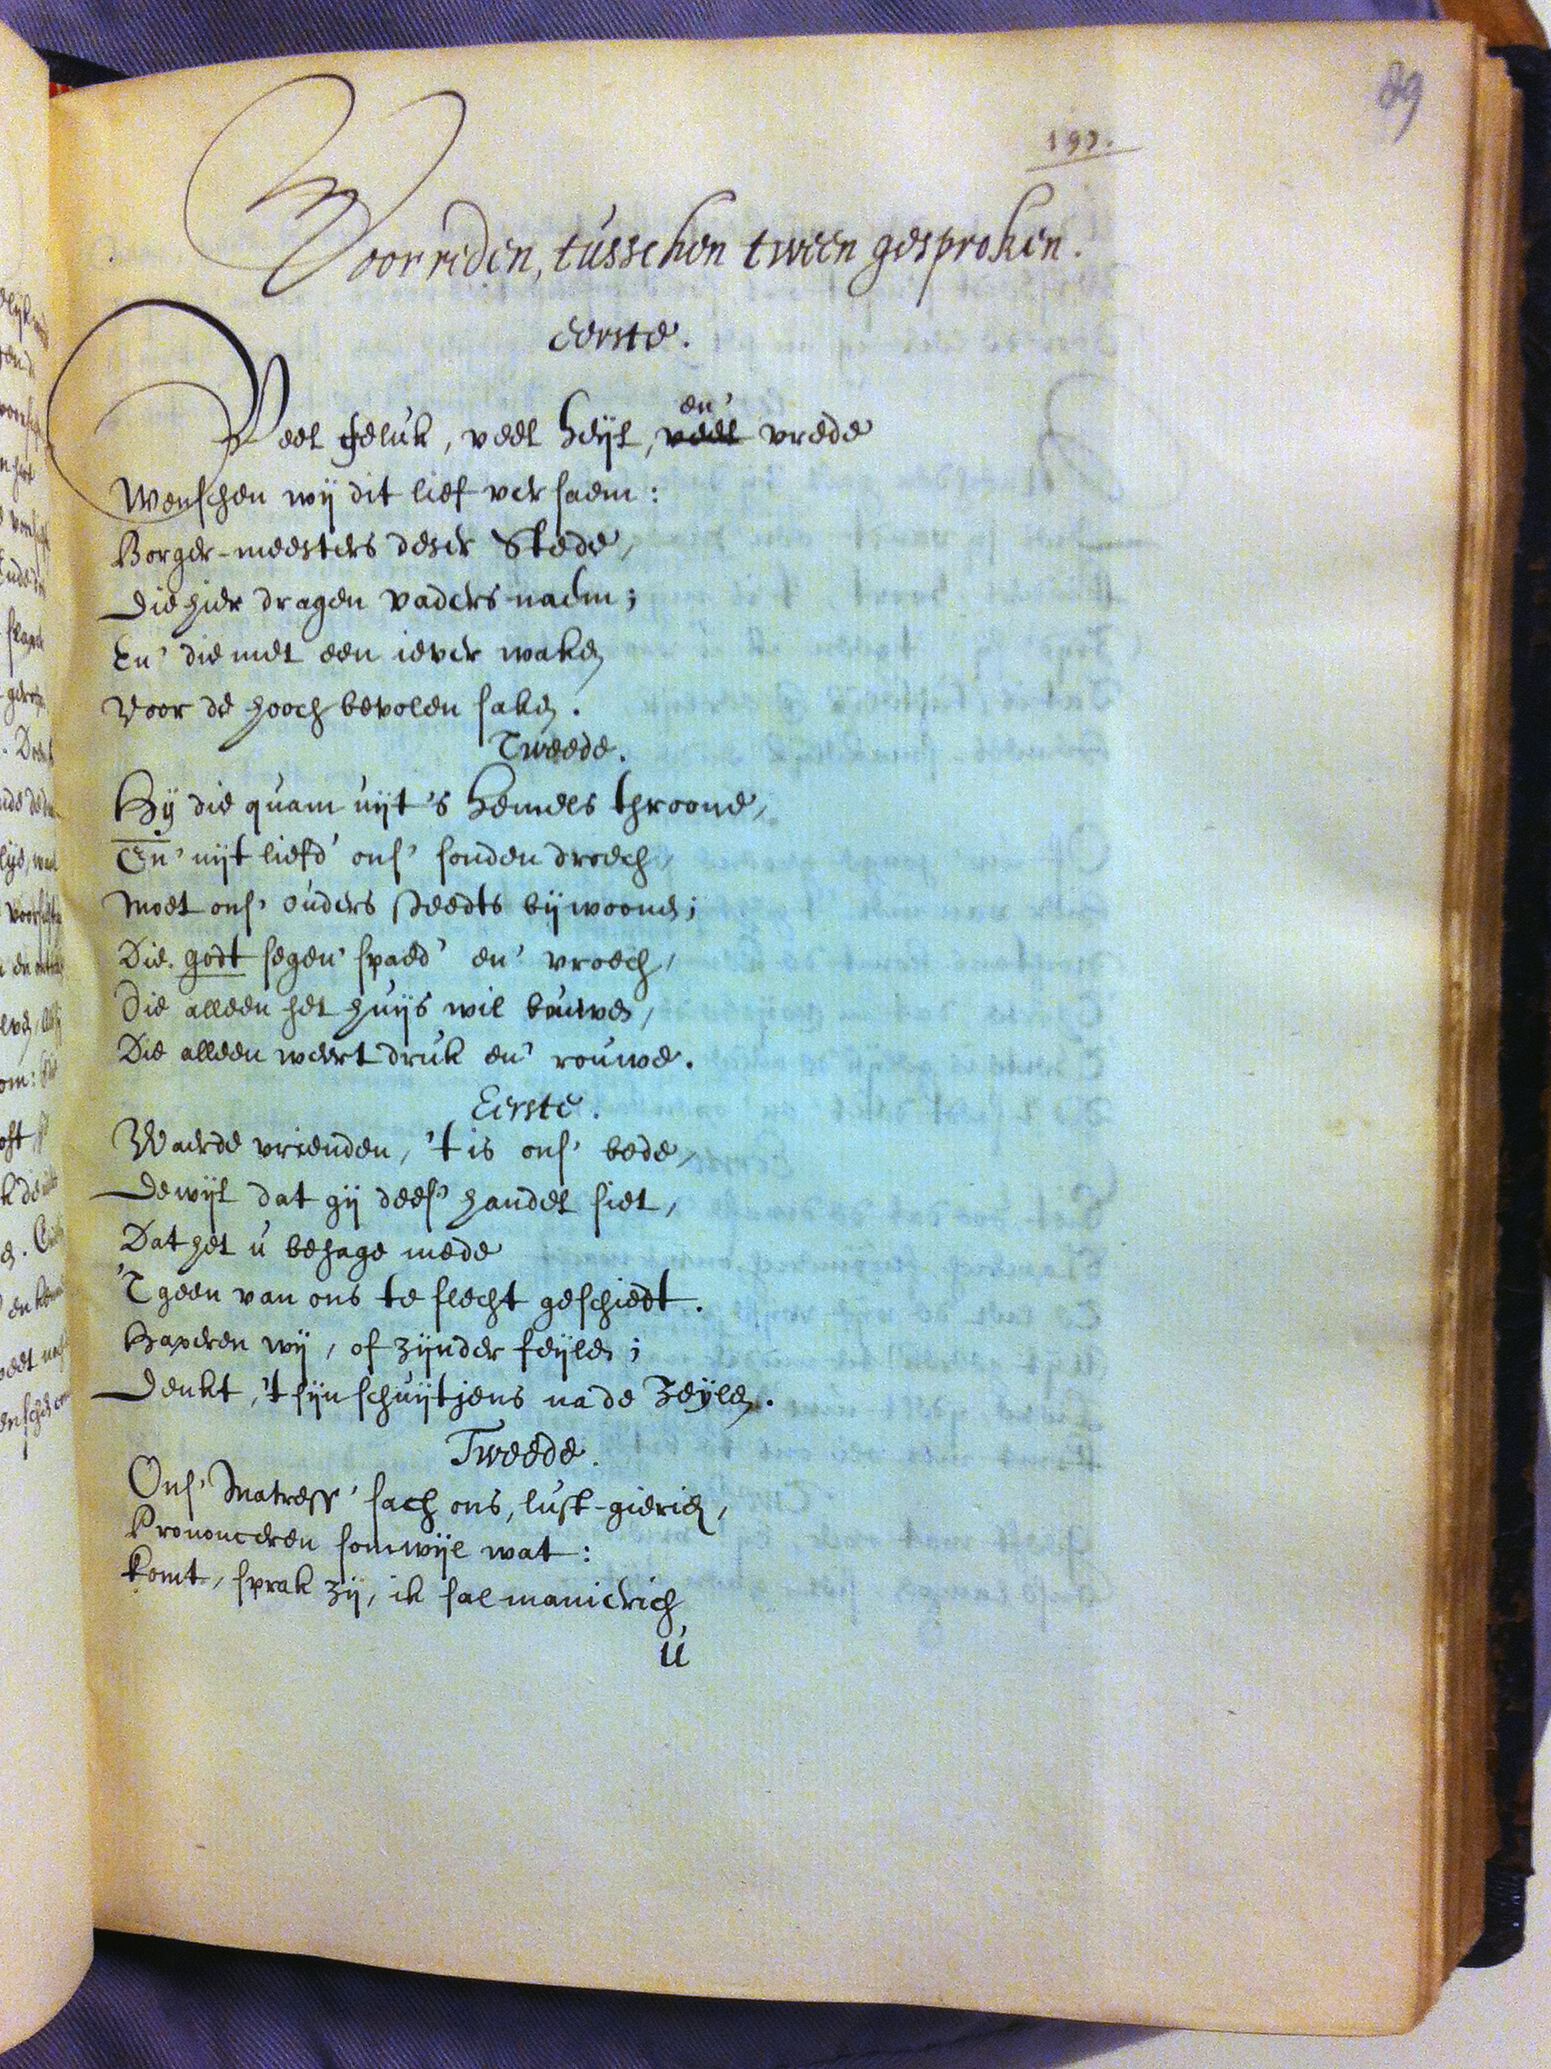 89
197.
Voorreden, tusschen tween gesproken.
Eerste.
Veel geluk, veel heyl, veel en' vrede
Wenschen wij dit lief versaem:
Borger-meesters deser Stede,
Die hier dragen vaders-naem;
En' die met een iever waken
Voor de hooch bevolen saken.
Tweede.
Hij die quam uijt 's hemels throone,
En' uijt liefd' ons' sonden droech,
Moet ons' ouders steedts bijwoonen;
Die godt segen' spaed' en' vroech,
Die alleen het huijs wil bouwen,
Die alleen weert druk en' rouwe.
Eerste.
Waerde vrienden, 't is ons' bede,
Dewijl dat gij dees' handel siet,
Dat het u behage mede
'T geen van ons te slecht geschiedt.
Haperen wij, of zijnder feijlen;
Denkt, 't sijn schuijtjens na de Zeylen.
Tweede.
Ons' Matress' sach ons, lust-gierich,
Prononceren somwijl wat:
Komt, sprak zij, ik sal manierich
U